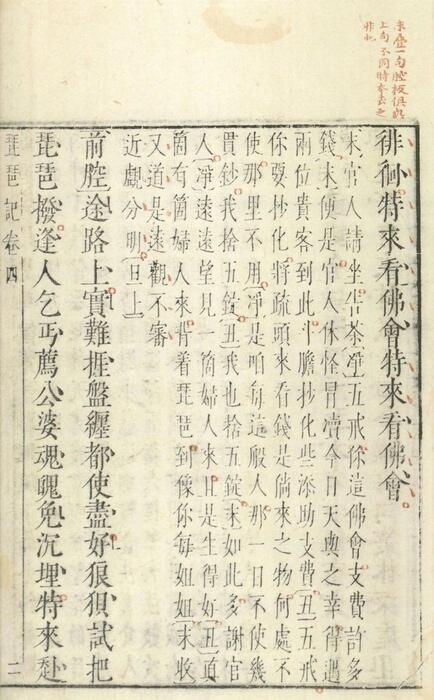 末疊一句腔板俱與
上句不同時本去之
非也
徘徊特來看佛會特來看佛會
末官人請坐告茶淨五戒你這佛會支費許多
錢末便是官人休怪冒瀆今日天與之幸得遇
兩位貴客到此斗膽抄化些添助支費丑五戒
你要抄化將疏頭來看錢是倘來之物何處不
使那里不用淨是咱每這般人那一日不使幾
貫鈔我捨五錠丑我也捨五錠末如此多謝官
人淨遠遠望見一箇婦人來且是生得好丑真
箇有箇婦人來背着琵琶到像你每姐姐末收
又道是遠觀不審
近觀分明旦上
前腔途路上實難捱盤纏都使盡好狼狽試把
琵琶撥逢人乞丐薦公婆魂魄免沉埋特來赴
琵琶記卷四
二